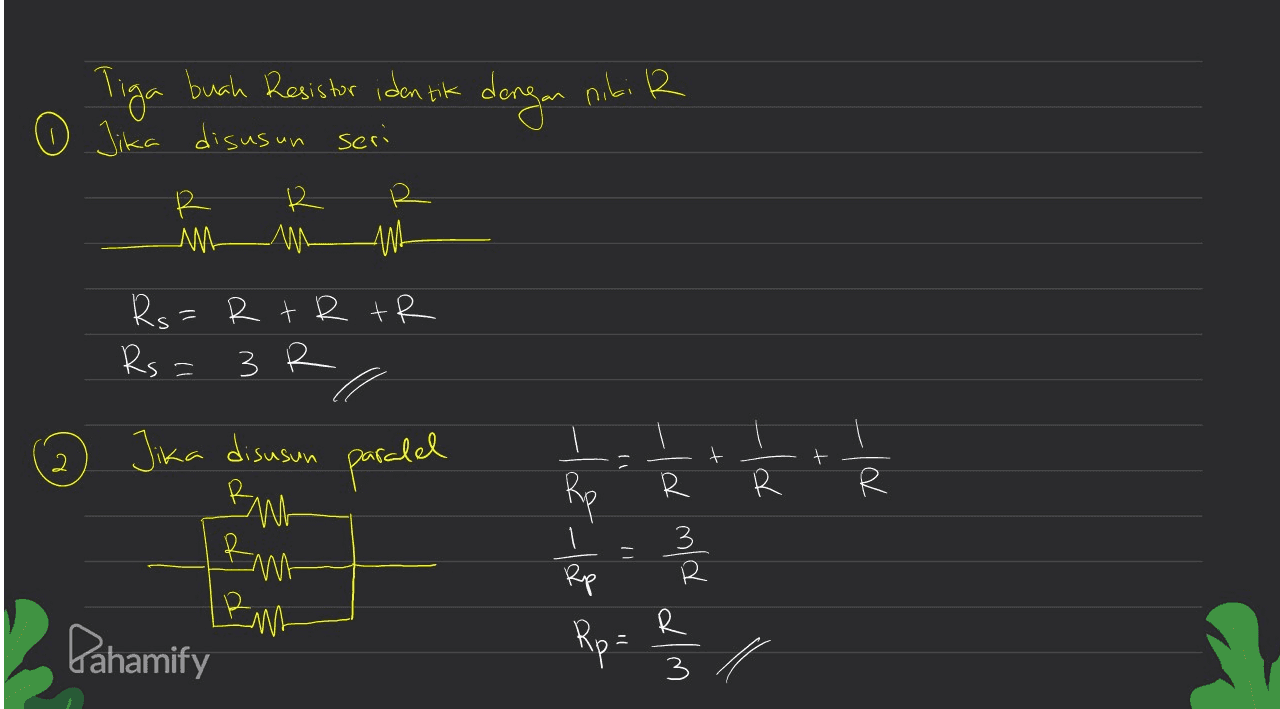 Tiga buah Resistor identik dengan nilai R
① Jika disusun seri
R R R
Rs = R + R + R
Rs = 3 R
② Jika disusun paralel
R
R
R
1/Rp = 1/R + 1/R + 1/R
1/Rp = 3/R
Rp = R/3
Pahamify